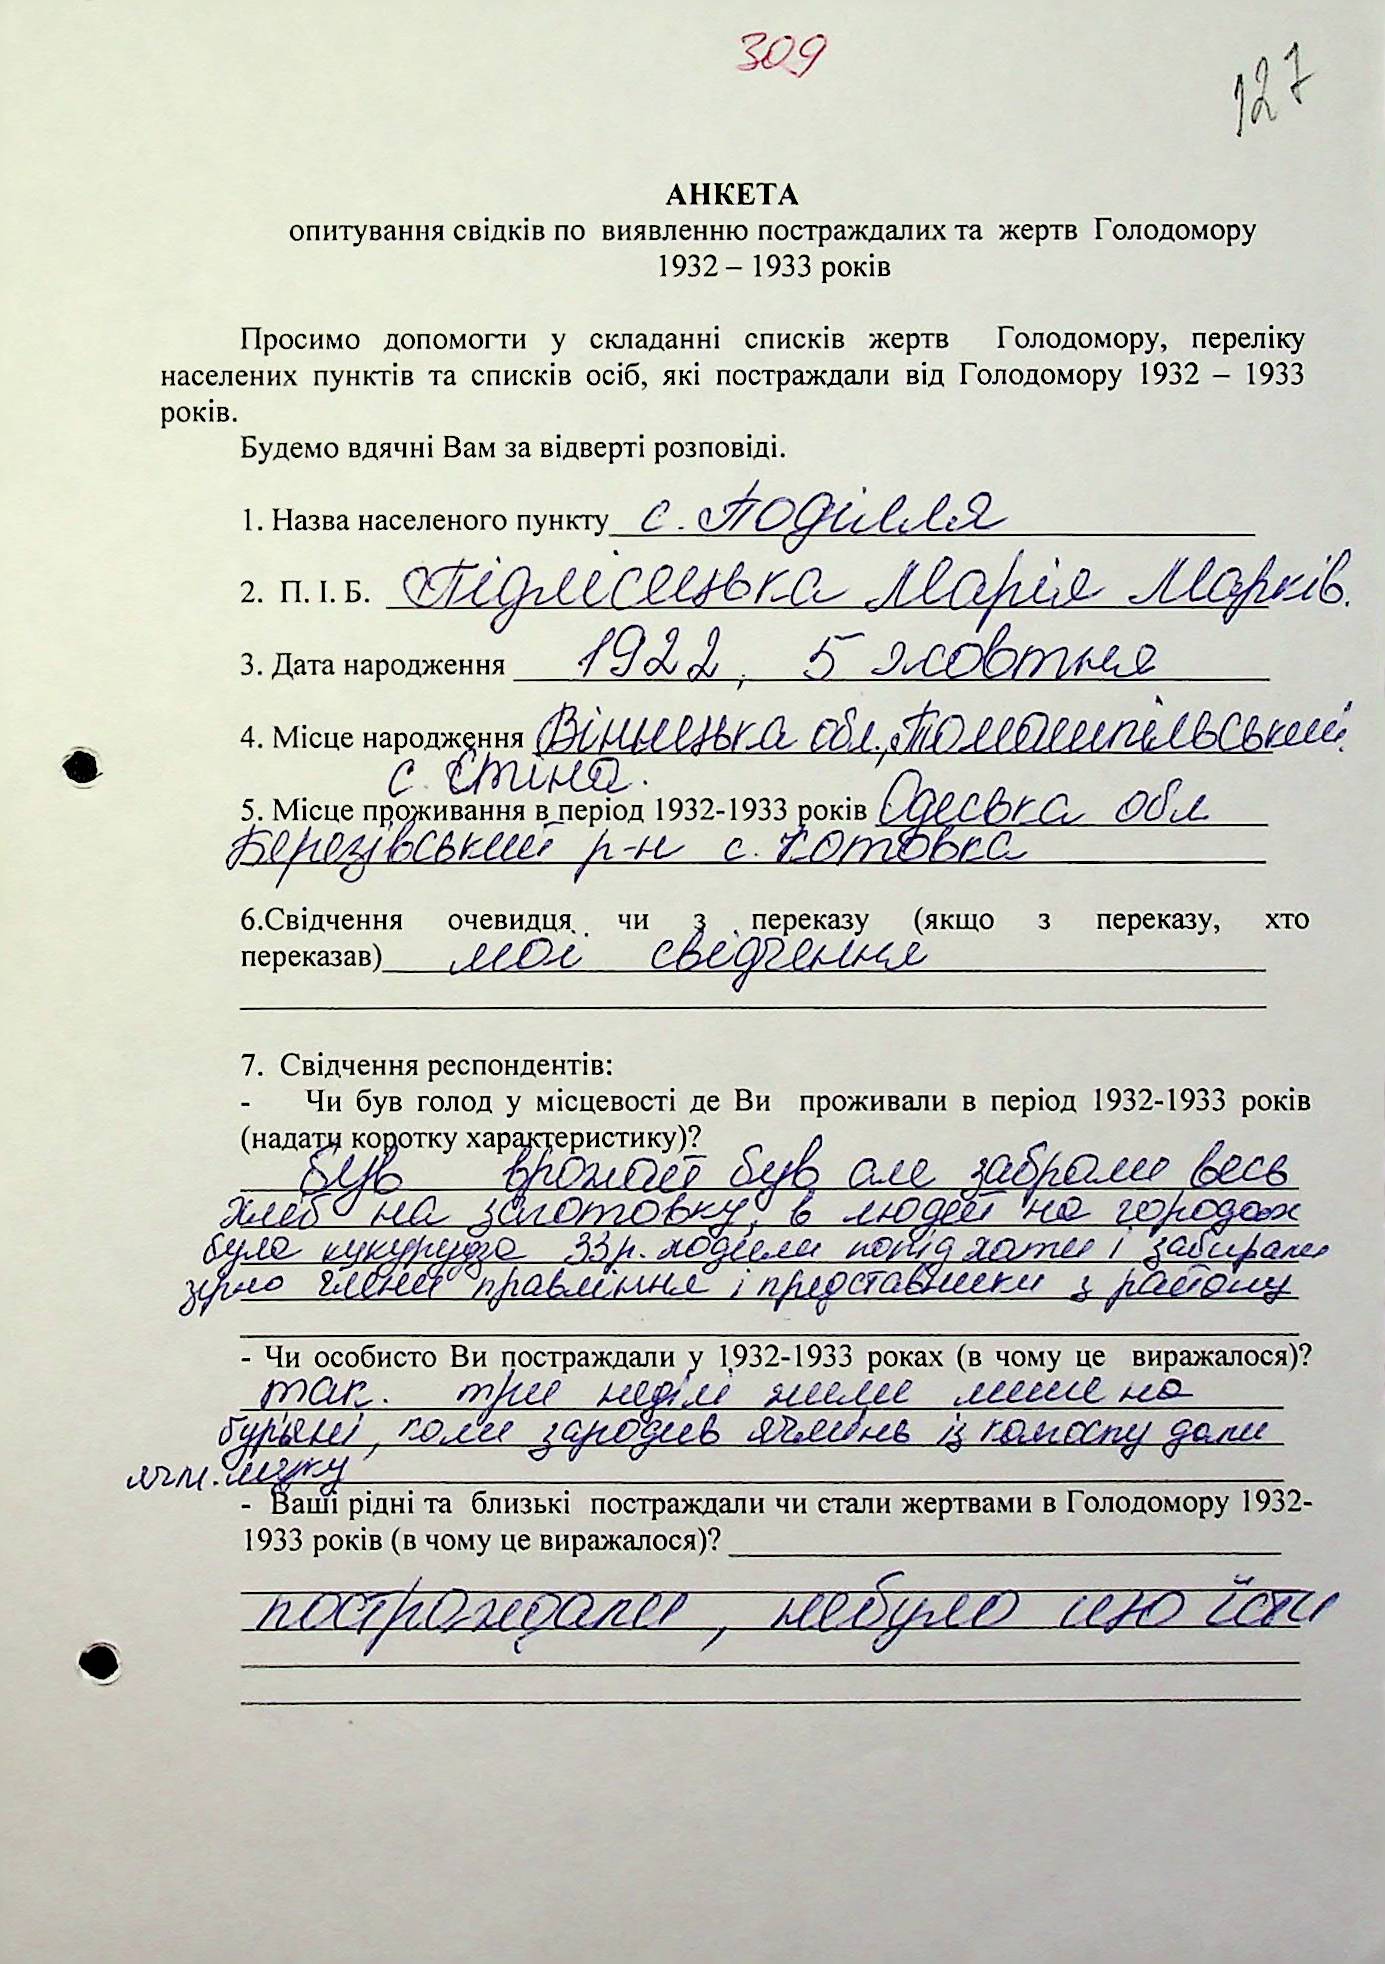 309
127
АНКЕТА
опитування свідків по виявленню постраждалих та жертв Голодомору
1932 – 1933 років
Просимо допомогти у складанні списків жертв Голодомору, переліку
населених пунктів та списків осіб, які постраждали від Голодомору 1932 – 1933
років.
Будемо вдячні Вам за відверті розповіді.
1. Назва населеного пункту с. Поділля
2. П. І. Б. Підлісецька Марія Марків.
3. Дата народження 1922, 5 жовтня
4. Місце народження Вінницька обл., Томашпільський
с. Стіна.
5. Місце проживання в період 1932-1933 років Одеська обл
Березівський р-н с. Котовка
6.Свідчення очевидця чи з переказу (якщо з переказу, хто
переказав) мої свідчення
7. Свідчення респондентів:
- Чи був голод у місцевості де Ви проживали в період 1932-1933 років
(надати коротку характеристику)?
був врожай був але забрали весь
хліб на заготовку, в людей на городах
була кукурудза 33р. ходили попід хати і забирали
зерно члени правління і представники з району
- Чи особисто Ви постраждали у 1932-1933 роках (в чому це виражалося)?
так. три неділі жили лише на
бур'яні, коли зародив ячмінь із колоспу дали
ячм. муку
- Ваші рідні та близькі постраждали чи стали жертвами в Голодомору 1932-
1933 років (в чому це виражалося)?
постраждали, небуло що їсти